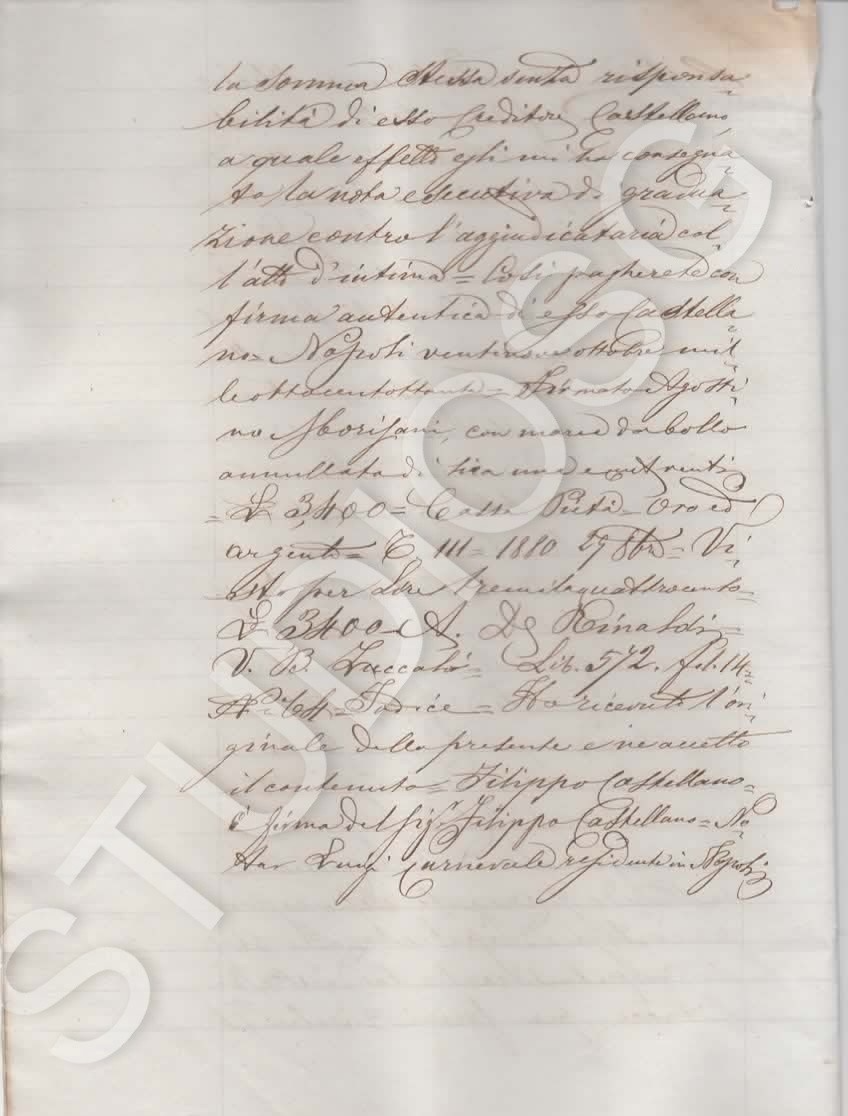 la somma stessa senza risponsa=
bilità di esso Creditore Castellano,
a quale effetto egli mi ha consegna=
to la nota esecutiva di gradua=
zione contro l'aggiudicataria col=
l'atto d'intima = Così pagherete con
firma autentica di esso Castella=
no = Napoli ventinove ottobre mil=
le ottocentottanta = Firmato Agosti=
no Morisani, con marca da bollo
annullata di lira una e cent. venti
= L 3,400 = Cassa Pietà = Oro ed
argento = C. III = 1880 29 8bre = Vi=
sto per Lire tremilaquattrocento =
L 3400 = A. De Rinaldi =
V. B. Zuccalò = Lib. 572. fol. 14 =
No. 64 = Iodice = Ho ricevuto l'ori=
ginale della presente e ne accetto
il contenuto = Filippo Castellano =
È firma del Sigr Filippo Castellano = No=
tar Luigi Carnevale residente in Napoli
STUDIOSG